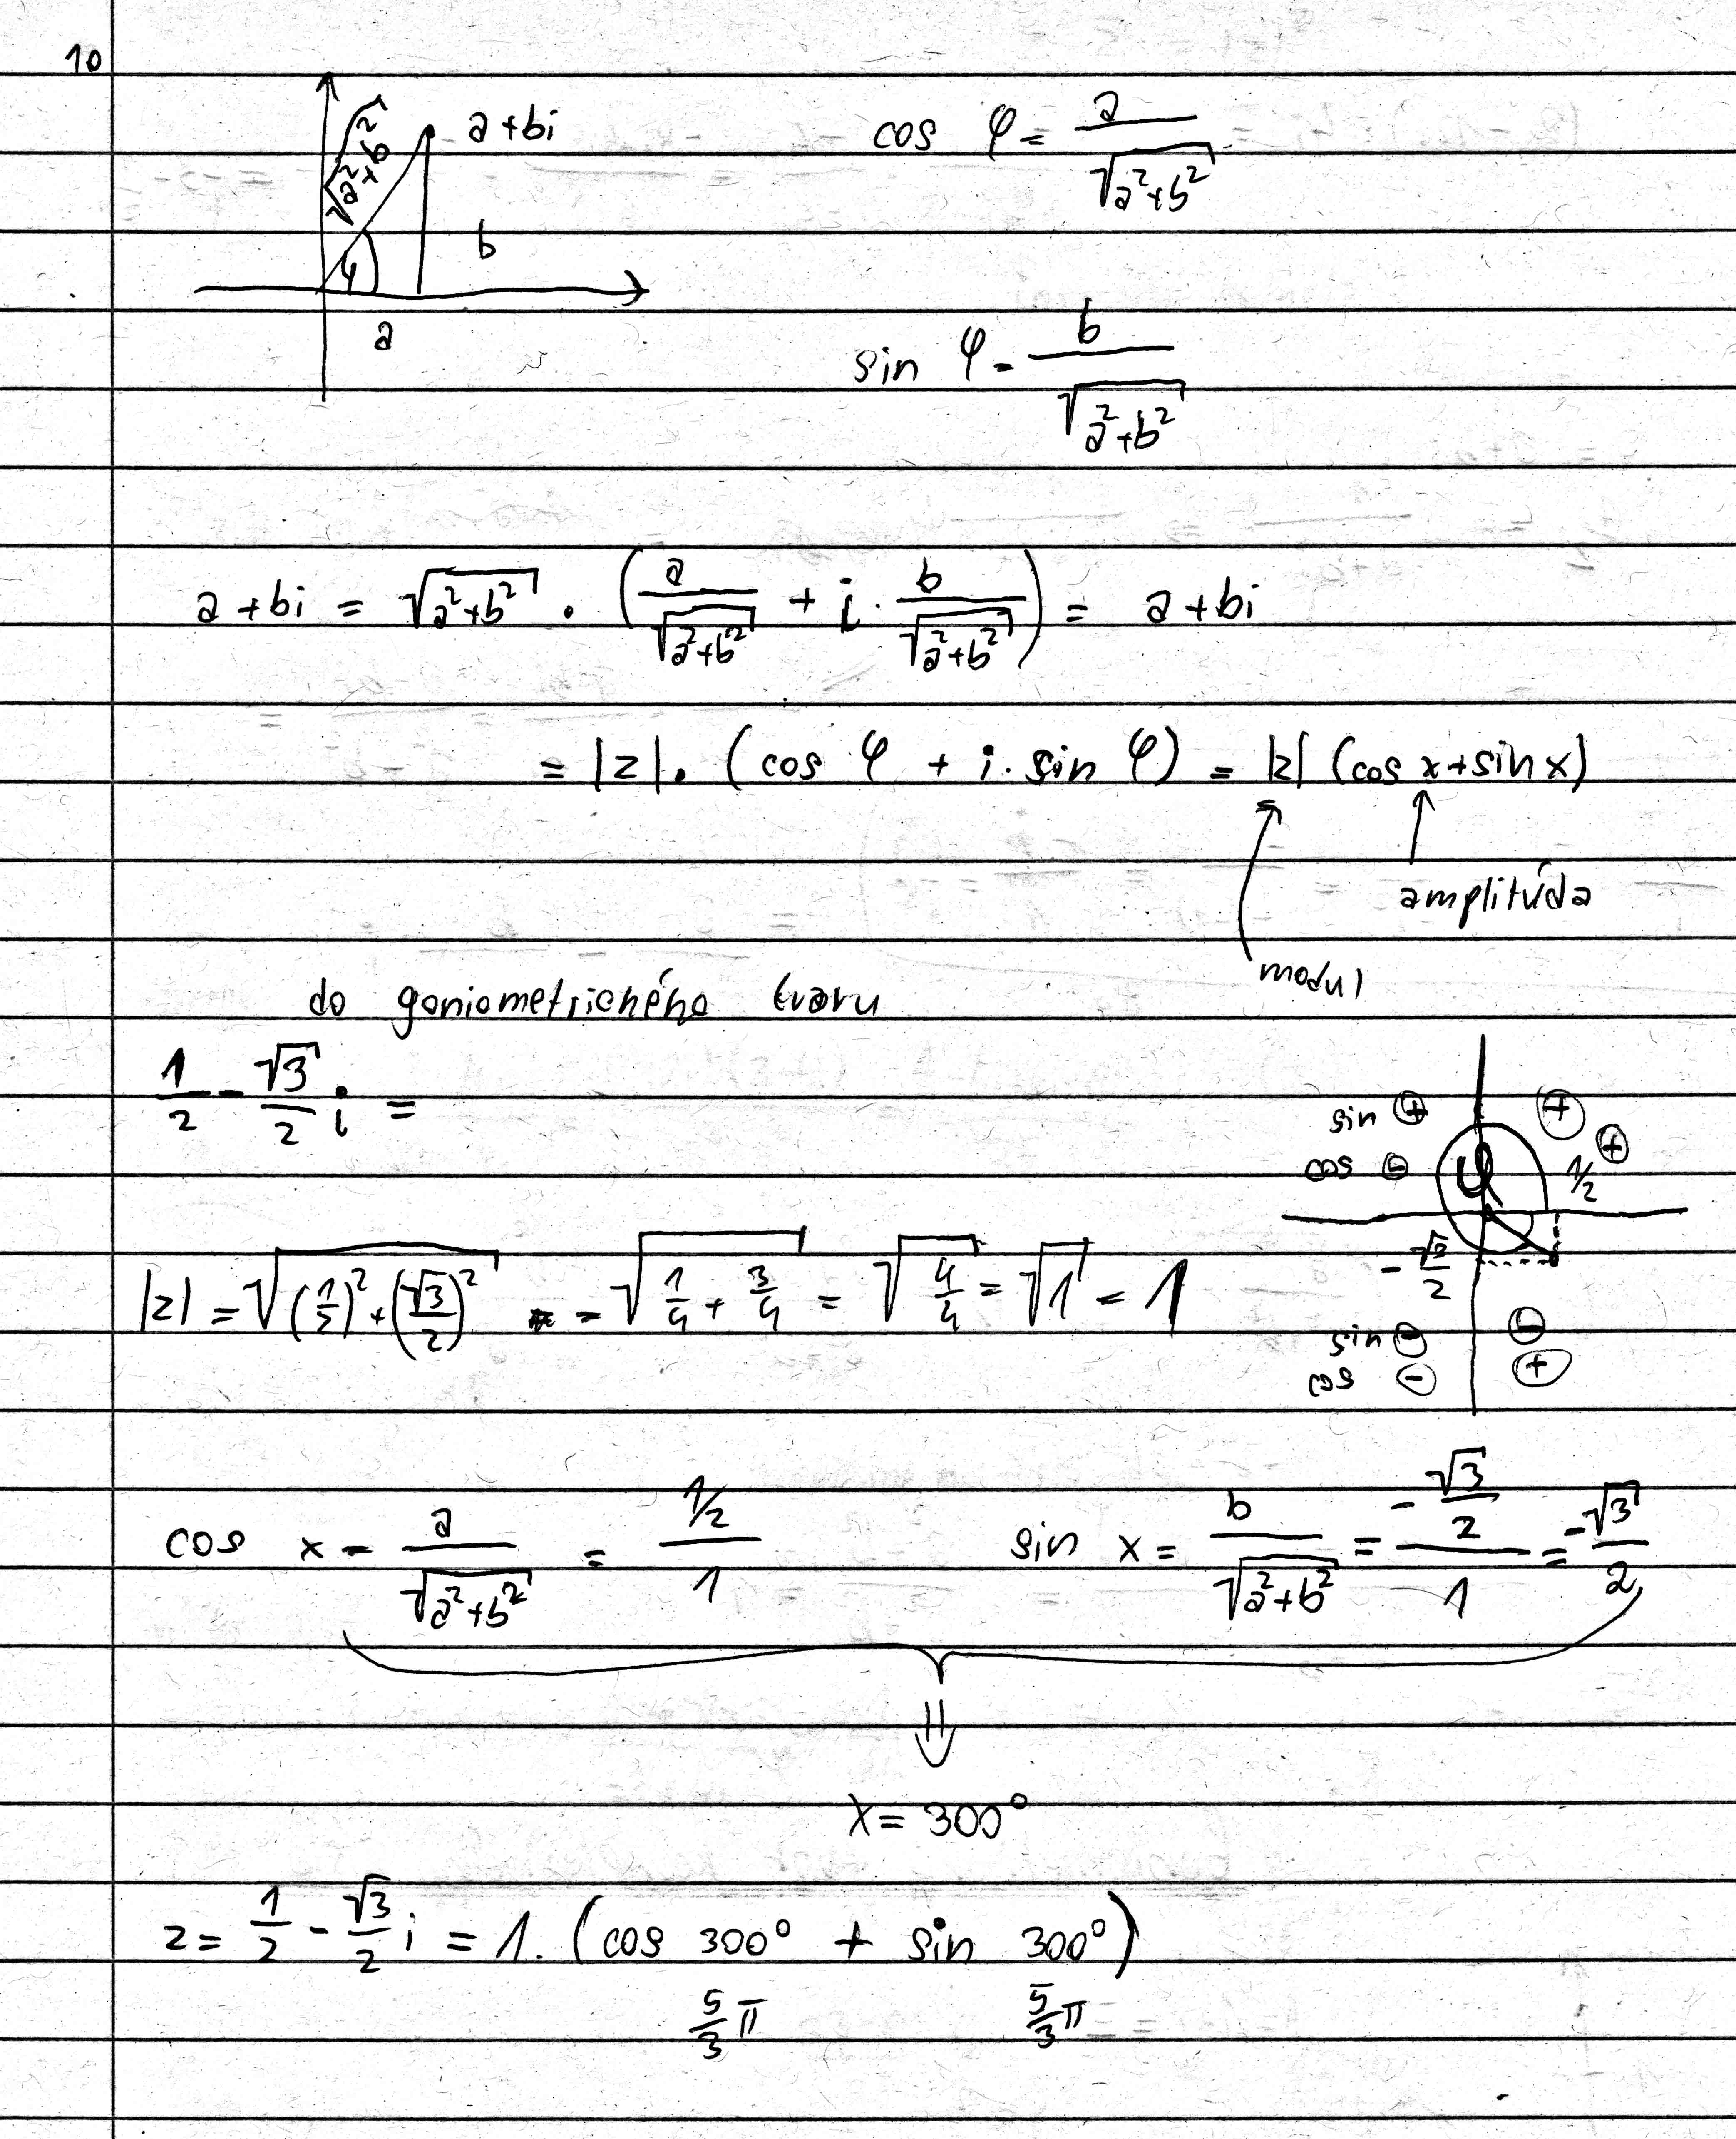 10
√(a²+b²)
a+bi
cos φ = a/√(a²+b²)
φ
b
a
sin φ = b/√(a²+b²)
a+bi = √(a²+b²) · (a/√(a²+b²) + i · b/√(a²+b²)) = a+bi
= |z| · (cos φ + i · sin φ) = |z| (cos x + sin x)
amplitúda
modul
do goniometrického tvaru
1/2 - √3/2 i =
sin ⊕ ⊕
cos ⊖ ⊕
φ 1/2
-√3/2
|z| = √((1/2)² + (√3/2)²) = √(1/4 + 3/4) = √(4/4) = √1 = 1
sin ⊖ ⊖
cos ⊖ ⊕
cos x = a/√(a²+b²) = (1/2)/1
sin x = b/√(a²+b²) = (-√3/2)/1 = -√3/2
⇓
x = 300°
z = 1/2 - √3/2 i = 1 · (cos 300° + sin 300°)
5/3 π 5/3 π